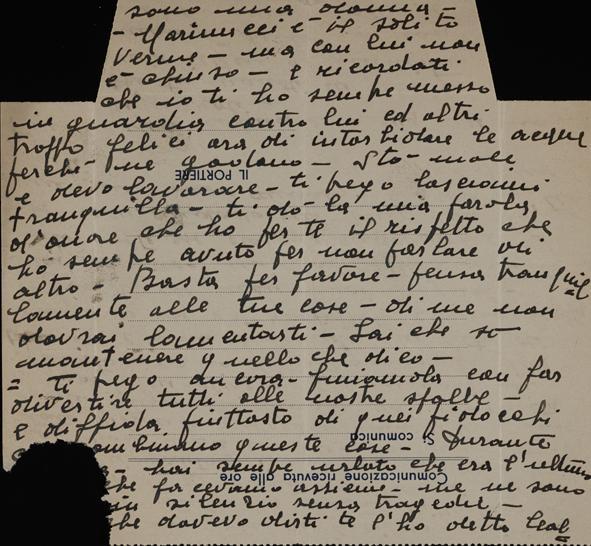 sono una donna -
- Marinucci è il solito
verme - ma con lui non
è chiuso - e ricordati
che io ti ho sempre messo
in guardia contro lui ed altri
troppo felici ora di intorbidare le acque
perchè ne godano - Sto male
IL PORTIERE
e devo lavorare - ti prego lasciami
tranquilla - ti dò la mia parola
d'onore che ho per te il rispetto che
ho sempre avuto per non parlare di
altro - Basta per favore - pensa tranquil
lamente alle tue cose - di me non
dovrai lamentarti - Sai che so
mantenere quello che dico -
= ti prego ancora - finiamola con far
divertire tutti alle nostre spalle -
e diffida piuttosto di quei pidocchi
combinano queste cose - Durante
Si comunica
- hai sempre urlato che era l'ultimo
Comunicazione ricevuta alle ore
che facevamo assieme - me ne sono
in silenzio senza tragedie -
che dovevo dirti te l'ho detto leal=